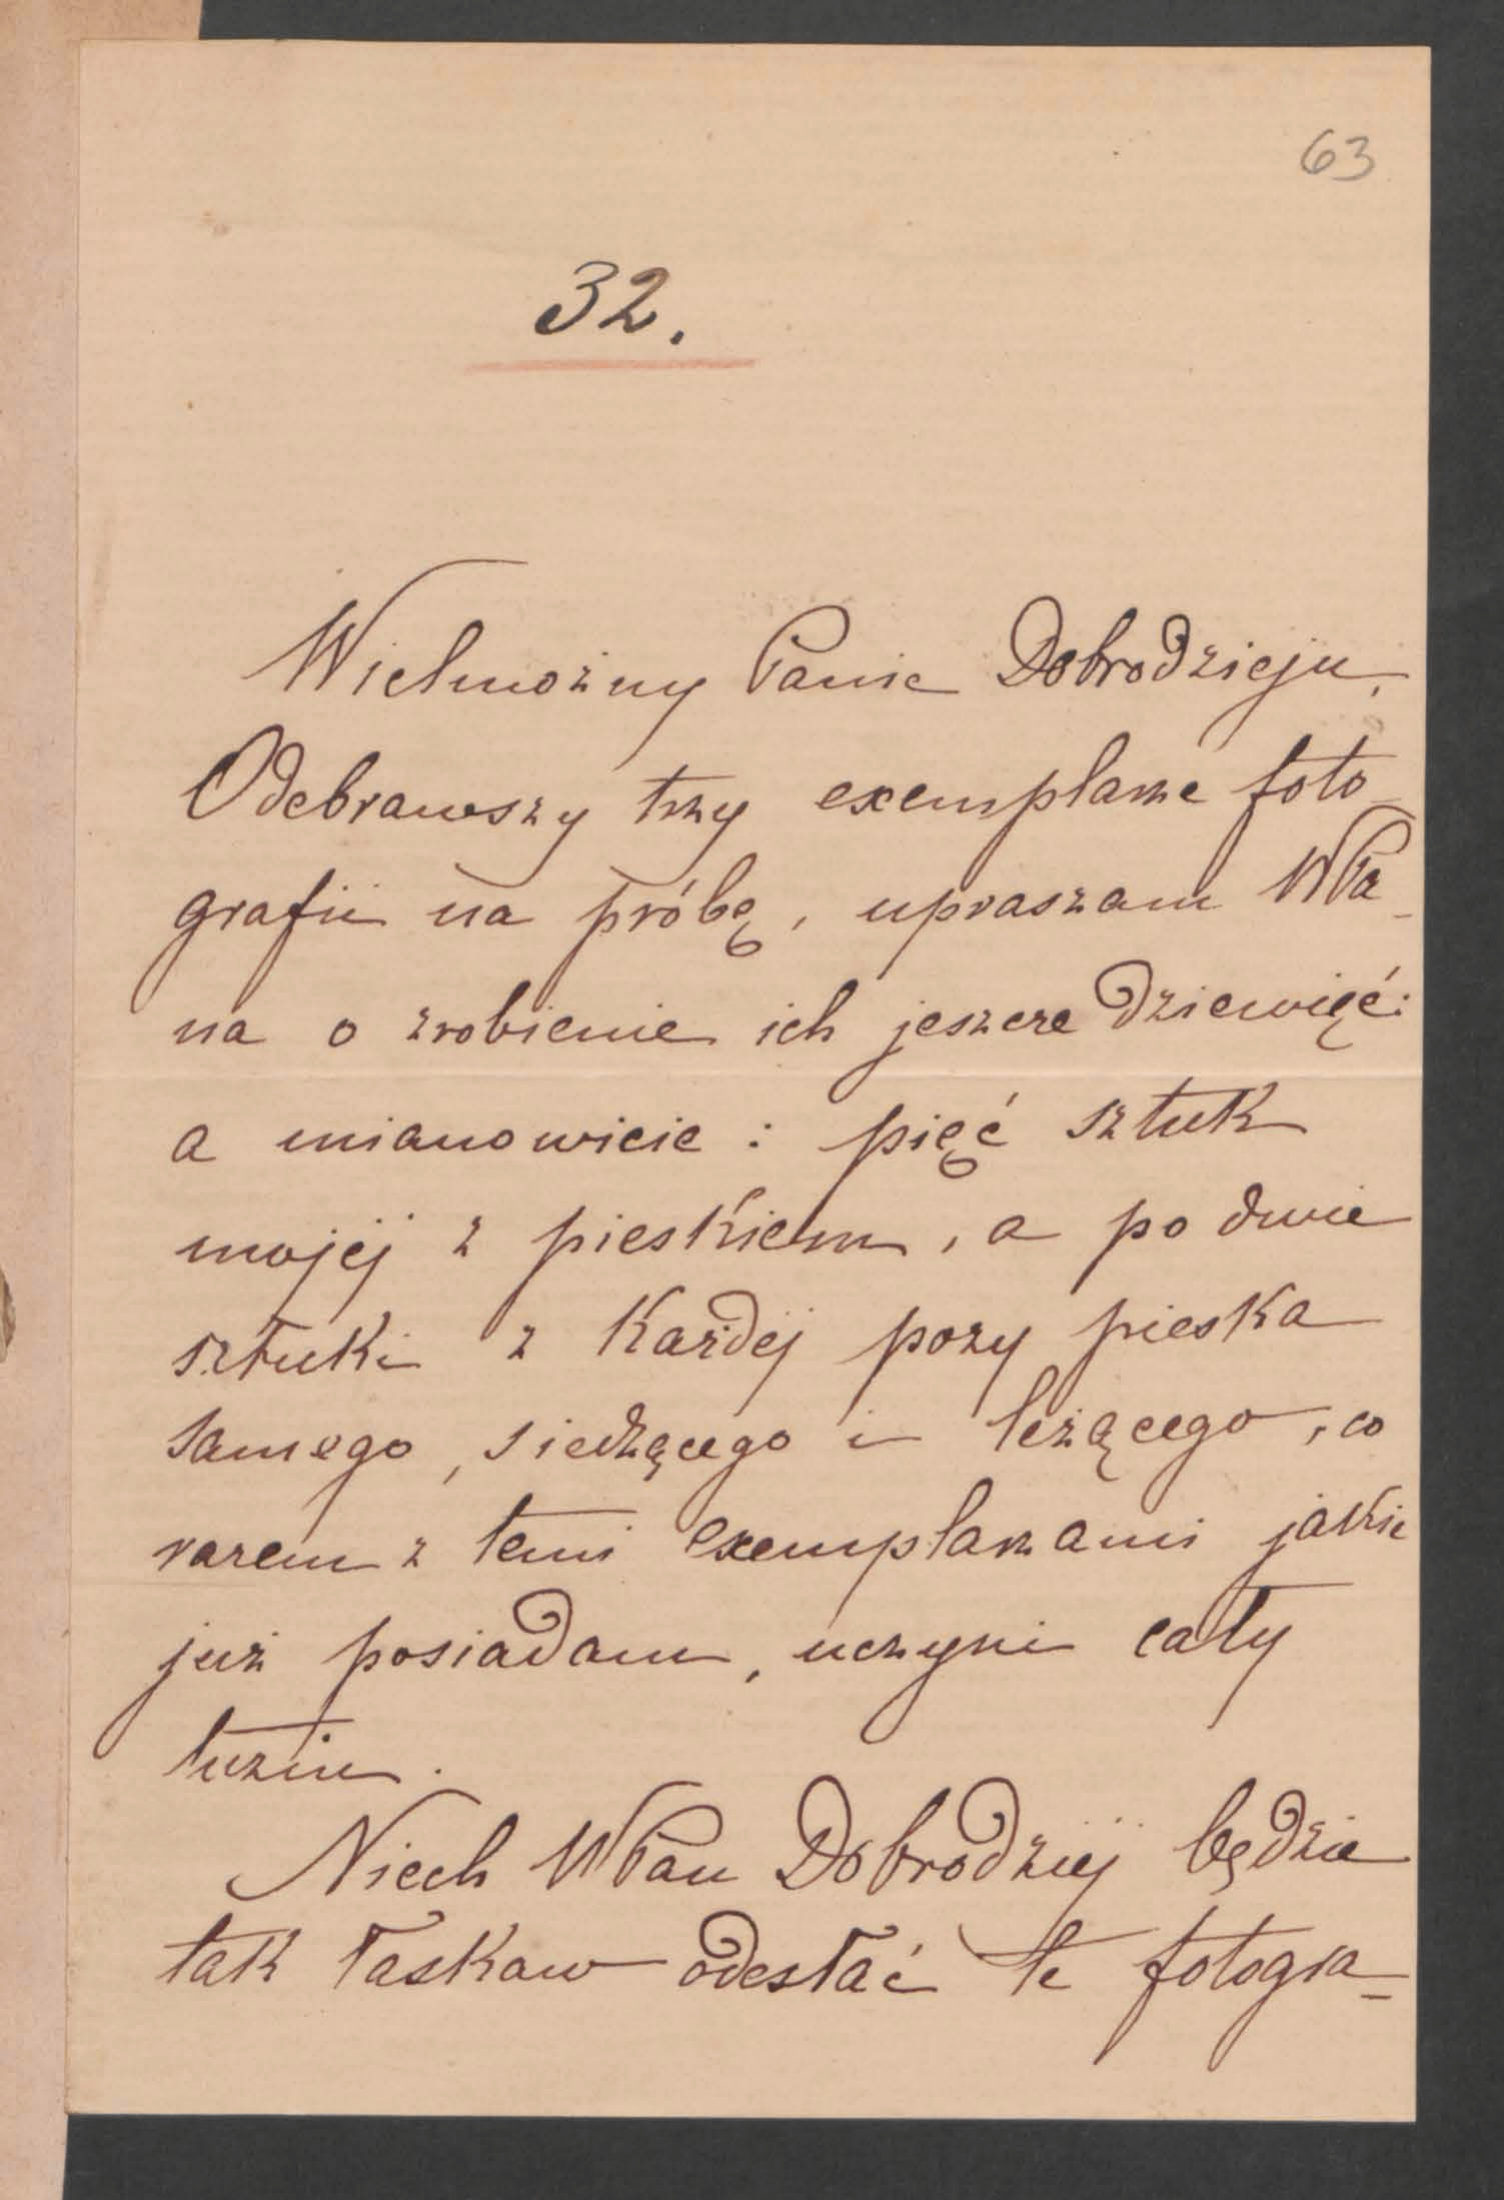 63
32.
Wielmożny Panie Dobrodzieju,
Odebrawszy trzy exemplarze foto-
grafii na próbę, upraszam WPa-
na o zrobienie ich jeszcze dziewięć:
a mianowicie : pięć sztuk
mojej z pieskiem, a po dwie
sztuki z każdej pozy pieska
samego, siedzącego i leżącego, co
razem z temi exemplarzami jakie
już posiadam, uczyni cały
tuzin.
Niech WPan Dobrodziej będzie
tak łaskaw odesłać te fotogra-